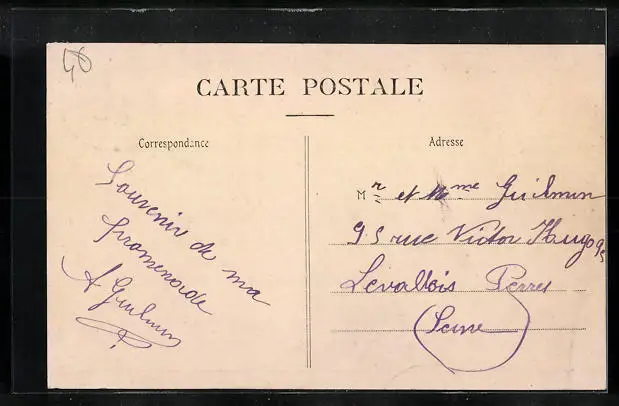 40
CARTE POSTALE
Correspondance
Adresse
Souvenir de ma
promenade
A Guilmin
Mr et Mme Guilmin
95 rue Victor Hugo 95
Levallois Perret
(Seine)